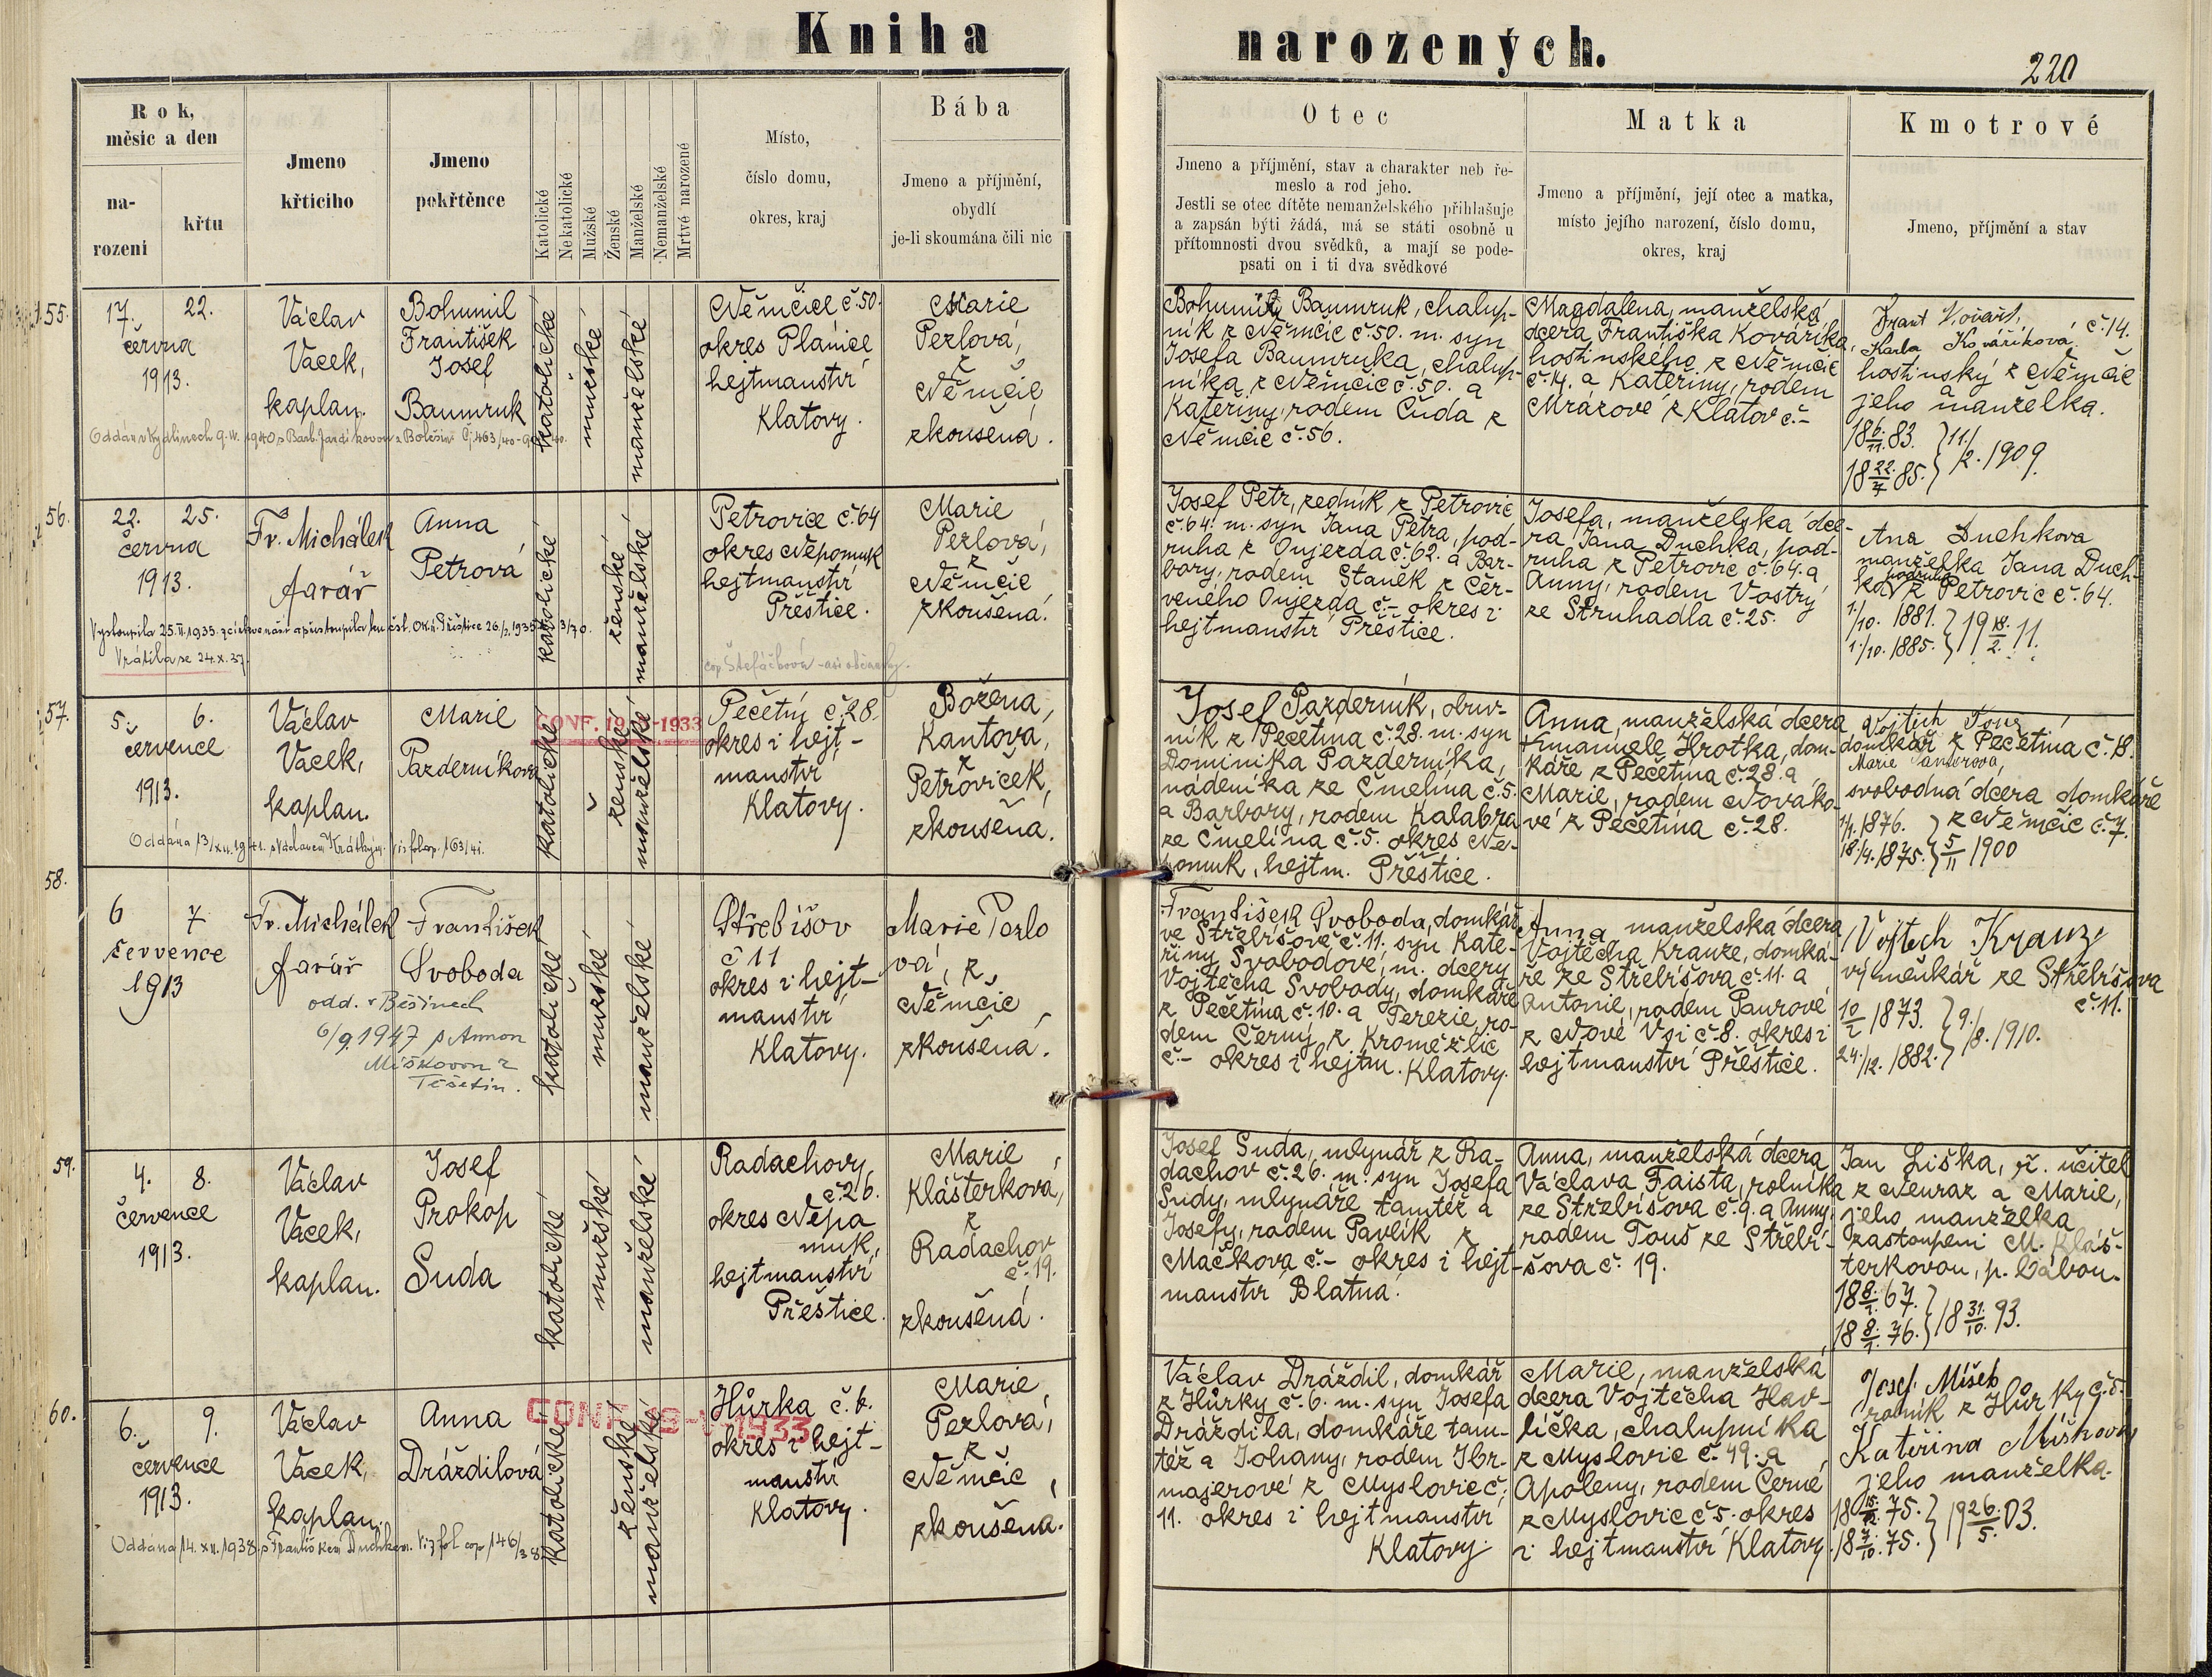 Kniha
narozených.
220
Rok,
měsíc a den
na-
rození
křtu
Jmeno
křticího
Jmeno
pokřtěnce
Katolické
Nekatolické
Mužské
Ženské
Manželské
Nemanželské
Mrtvé narozené
Místo,
číslo domu,
okres, kraj
Bába
Jmeno a příjmění,
obydlí
je-li skoumána čili nic
Otec
Jmeno a příjmění, stav a charakter neb ře-
meslo a rod jeho.
Jestli se otec dítěte nemanželského přihlašuje
a zapsán býti žádá, má se státi osobně u
přítomnosti dvou svědků, a mají se pode-
psati on i ti dva svědkové
Matka
Jmeno a příjmění, její otec a matka,
místo jejího narození, číslo domu,
okres, kraj
Kmotrové
Jmeno, příjmění a stav
55.
17. 22.
června
1913.
Václav
Vacek,
kaplan.
Bohumil
František
Josef
Baumruk
katolické
mužské
manželské
Němčice č. 50.
okres Plánice
hejtmanství
Klatovy.
Marie
Perlová,
z
Němčic
zkoušená.
Bohumil Baumruk, chalup-
ník z Němčic č. 50. m. syn
Josefa Baumruka, chalup-
níka z Němčic č. 50. a
Kateřiny, rodem Čuda z
Němčic č. 56.
Magdalena, manželská
dcera Františka Kováříka,
hostinského z Němčic
č. 14. a Kateřiny, rodem
Mrázové z Klatov č. -
Frant
Karla Kováříková č. 14.
hostinský z Němčic
a
jeho manželka.
18 6/11. 83. } 11./2. 1909.
18 22/7 85.
56.
22. 25.
června
1913.
Fr. Michálek
farář
Anna
Petrová
Vystoupila 25.II.1935. z církve
Vrátila se 24.X.37.
katolické
ženské
manželské
Petrovice č. 64
okres Nepomuk
hejtmanství
Přeštice.
Marie
Perlová,
z
Němčic
zkoušená.
Josef Petr, zedník z Petrovic
č. 64. m. syn Jana Petra, pod-
ruha z Oujezda č. 62. a Bar-
bory, rodem Staněk z Čer-
veného Oujezda č. - okres i
hejtmanství Přeštice.
Josefa, manželská dce-
ra Jana Duchka, pod-
ruha z Petrovic č. 64. a
Anny, rodem Vostrý
ze Struhadla č. 25.
Ana Duchkova
manželka Jana Duch-
ka podruha z Petrovic č. 64.
1./10. 1881. } 19 18./2. 11.
1./10. 1885.
57.
5. 6.
července
1913.
Václav
Vacek,
kaplan.
Marie
Pazderníková
Oddána 13/XII.1941. s Václavem Krátkým. viz fol cop. 163/41.
katolické
ženské
manželské
CONF. -1933
Pečetín č. 28.
okres i hejt-
manství
Klatovy.
Božena,
Kantová,
z
Petroviček,
zkoušená.
Josef Pazderník, obuv-
ník z Pečetína č. 28. m. syn
Dominika Pazderníka,
nádeníka ze Čmelína č. 5.
a Barbory, rodem Kalabra
ze Čmelína č. 5. okres Ne-
pomuk, hejtm. Přeštice.
Anna, manželská dcera
Emanuele Hrotka, dom-
káře z Pečetína č. 28. a
Marie, rodem Nováko-
vé z Pečetína č. 28.
Vojtěch Touš
domkář z Pečetína č. 18.
Marie
svobodná dcera domkáře
z Němčic č. 7.
1/1. 1876. } 5/11 1900
18./4. 1875.
58.
6 7
července
1913
Fr. Michálek
farář
František
Svoboda
odd. v Běšinech
6/9. 1947 s Annou
Míškovou z
Těšetin.
katolické
mužské
manželské
Střebišov
č 11
okres i hejt-
manství
Klatovy.
Marie Perlo
vá, z,
Němčic
zkoušená.
František Svoboda, domkář
ve Střebíšově č. 11. syn Kate-
řiny Svobodové, m. dcery
Vojtěcha Svobody, domkáře
z Pečetína č. 10. a Terezie, ro-
dem Černý z Kroměždic
č. - okres i hejtm. Klatovy.
Anna manželská dcera
Vojtěcha Krauze, domká-
ře ze Střebíšova č. 11. a
Antonie, rodem Paurové
z Nové Vsi č. 8. okres i
hejtmanství Přeštice.
Vojtech Krauz
výměnkář ze Střebíšova
č. 11.
10/2 1873. } 9./8. 1910.
24./12. 1882.
59.
4. 8.
července
1913.
Václav
Vacek,
kaplan.
Josef
Prokop
Suda
katolické
mužské
manželské
Radachovy,
č. 26.
okres Nepo
muk,
hejtmanství
Přeštice.
Marie
Klášterková,
z
Radachov
č. 19.
zkoušená.
Josef Suda, mlynář z Ra-
dachov č. 26. m. syn Josefa
Sudy, mlynáře tamtéž a
Josefy, rodem Pavlík z
Mačkova č. - okres i hejt-
manství Blatná.
Anna, manželská dcera
Václava Faista, rolníka
ze Střebíšova č. 9. a Anny,
rodem Touš ze Střebí-
šova č. 19.
Jan Liška, ř. učitel
z Neuraz a Marie,
jeho manželka
zastoupeni M. Kláš-
terkovou, p. bábou.
18 8./1. 67. } 18 31./10. 93.
18 8./1. 76.
60.
6. 9.
července
1913.
Václav
Vacek,
kaplan.
Anna
Dráždilová
Oddána 14. XII. 1938 s Františkem Duchkem. Viz fol cop 146/38
katolické
ženské
manželské
CONF. 1933
Hůrka č. 6.
okres i hejt-
manství
Klatovy.
Marie,
Perlová,
z
Němčic,
zkoušená.
Václav Dráždil, domkář
z Hůrky č. 6. m. syn Josefa
Dráždila, domkáře tam-
též a Johany, rodem Hbr-
majerové z Myslovic č.
11. okres i hejtmanství
Klatovy.
Marie, manželská
dcera Vojtěcha Hav-
líčka, chalupníka
z Myslovic č. 49. a
Apoleny, rodem Černé
z Myslovic č 5. okres
i hejtmanství Klatovy.
Josef Míšek
rolník z Hůrky č. 5.
Kateřina Míšková
jeho manželka.
18 15./12. 75. } 19 26./5. 03.
18 7./10. 75.